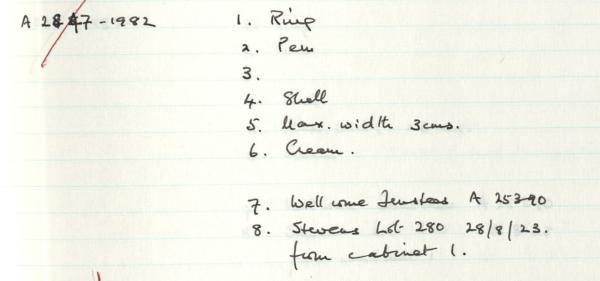 A 2887-1982
1. Ring
2. Peru
3.
4. Shell
5. Max. width 3cms.
6. Cream.
7. Wellcome A 25390
8. Stevens Lot 280 28/8/23.
from cabinet 1.